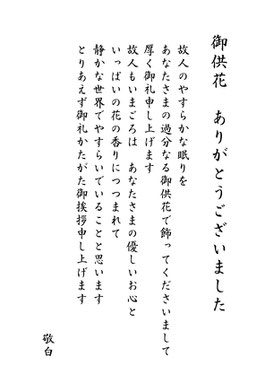 御供花　ありがとうございました
故人のやすらかな眠りを
あなたさまの過分なる御供花で飾ってくださいまして
厚く御礼申し上げます
故人もいまごろは　あなたさまの優しいお心と
いっぱいの花の香りにつつまれて
静かな世界でやすらいでいることと思います
とりあえず御礼かたがた御挨拶申し上げます
敬白